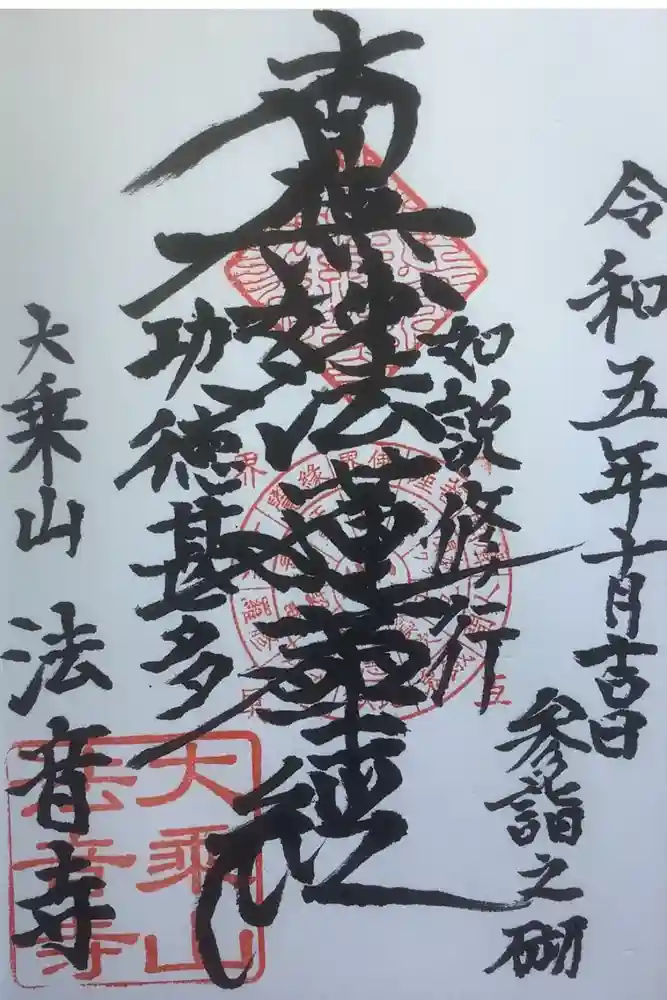 令和五年十月吉日
参詣之砌
如説修行
南無妙法蓮華経
功徳甚多
大乗山 法音寺
大乗山
法音寺